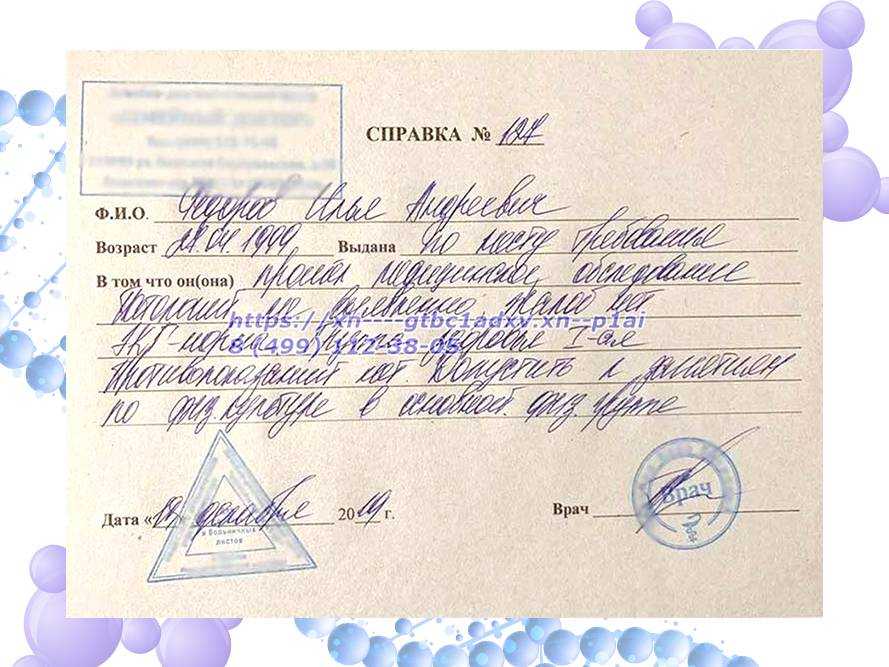 СПРАВКА № 127
Ф.И.О. Федоров Илья Андреевич
Возраст 27.04.1999 Выдана по месту требования
В том что он(она) прошел медицинское обследование
Патологий не выявлено. Жалоб нет.
https://xn----gtbc1adxv.xn--p1ai
ЭКГ-норма. Группа здоровья I-ая
8 (499) 112-38-05
Противопоказаний нет. Допустить к занятиям
по физ. культуре в основной физ. группе
Дата «12» декабря 2019 г.
Врач
Врач
и больничных
листов